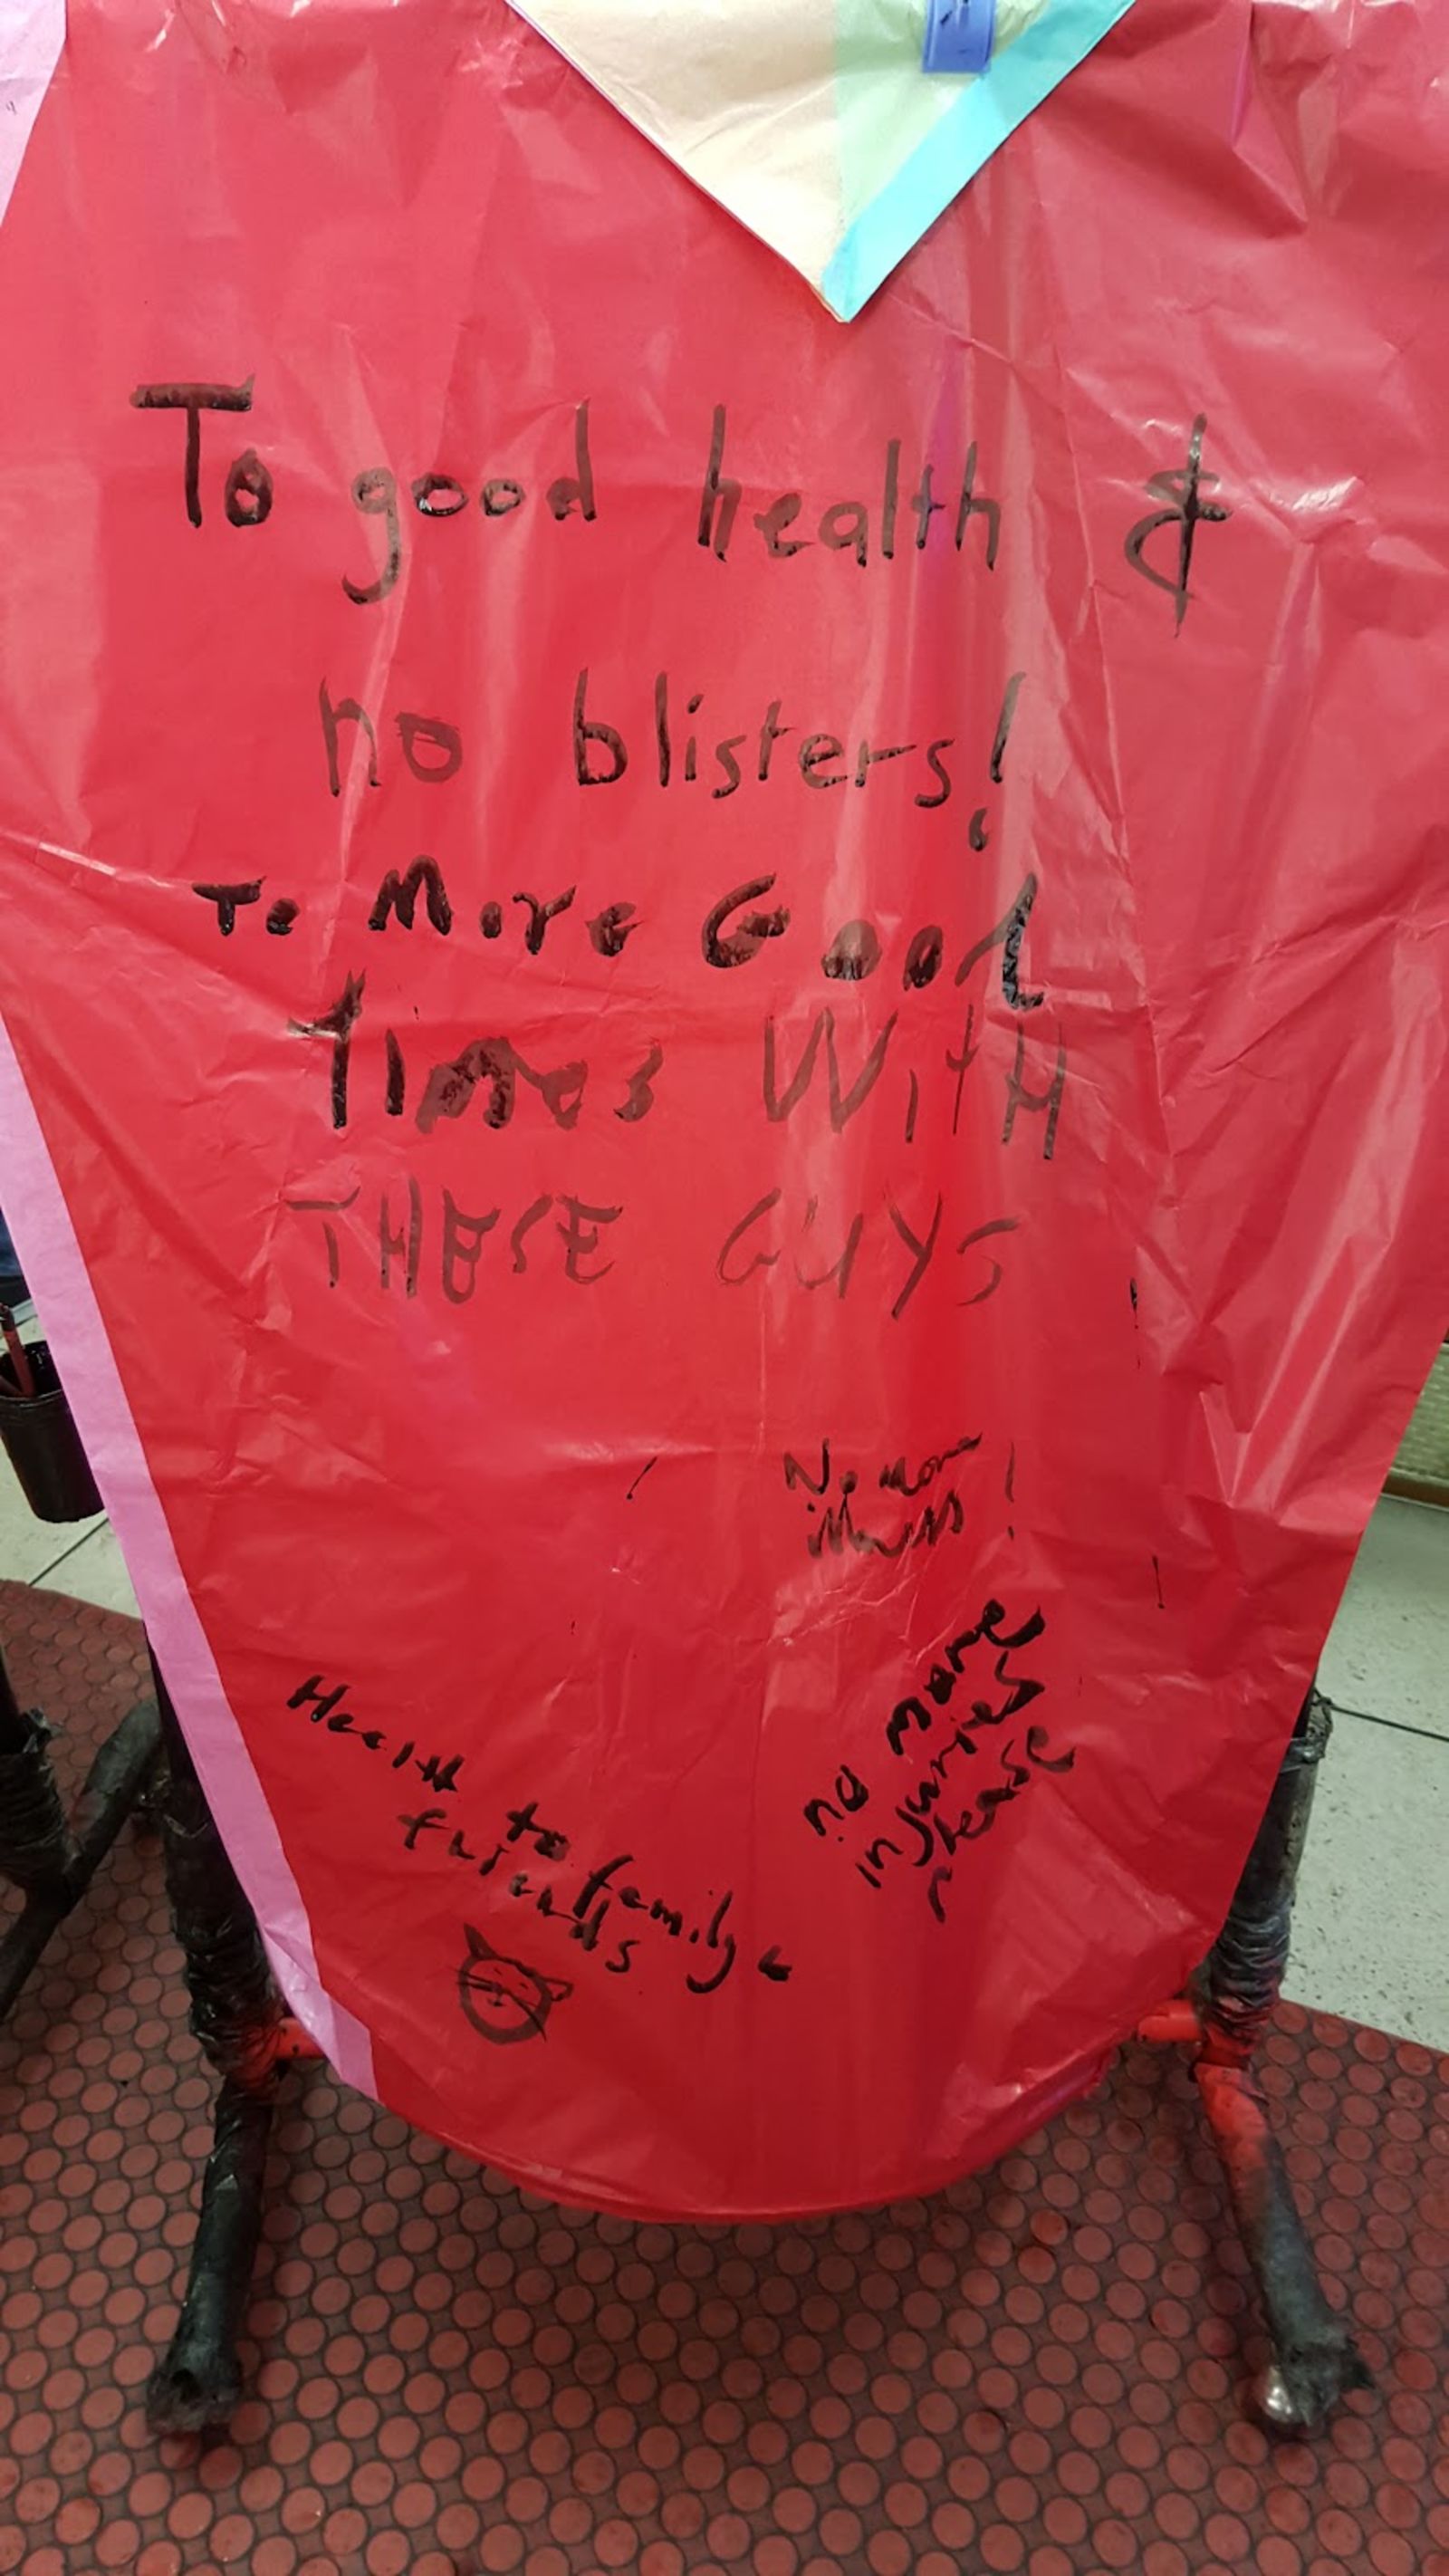 To good health &
no blisters!
To More Good
Times WitH
THESE GUYS
No more
illness!
no more
injuries
please
Health to family &
friends